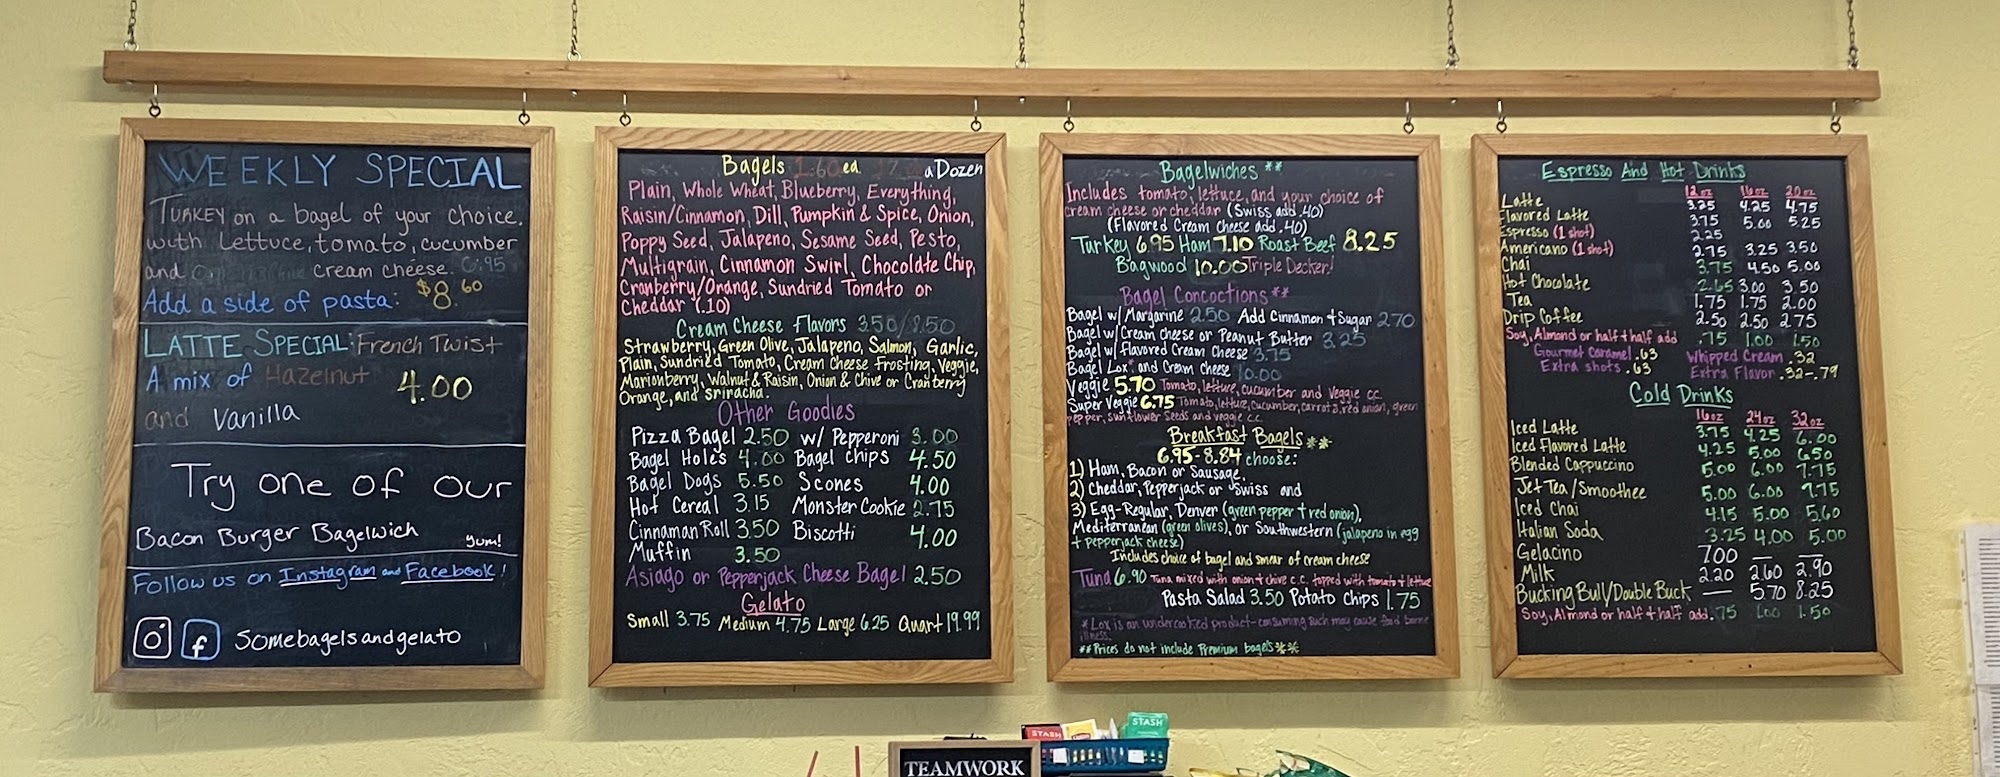 WEEKLY SPECIAL
TURKEY on a bagel of your choice,
with lettuce, tomato, cucumber
and cream cheese. 6.95
Add a side of pasta: $8.60
LATTE SPECIAL: French Twist
A mix of Hazelnut 4.00
and Vanilla
Try one of our
Bacon Burger Bagelwich yum!
Follow us on Instagram and Facebook!
f somebagelsandgelato
Bagels 1.60 ea a Dozen
Plain, Whole Wheat, Blueberry, Everything,
Raisin/Cinnamon, Dill, Pumpkin & Spice, Onion,
Poppy Seed, Jalapeno, Sesame Seed, Pesto,
Multigrain, Cinnamon Swirl, Chocolate Chip,
Cranberry/Orange, Sundried Tomato or
Cheddar (.10)
Cream Cheese Flavors 3.50/8.50
Strawberry, Green Olive, Jalapeno, Salmon, Garlic,
Plain, Sundried Tomato, Cream Cheese Frosting, Veggie,
Marionberry, Walnut & Raisin, Onion & Chive or Cranberry
Orange, and Sriracha.
Other Goodies
Pizza Bagel 2.50 w/ Pepperoni 3.00
Bagel Holes 4.00 Bagel chips 4.50
Bagel Dogs 5.50 Scones 4.00
Hot Cereal 3.15 Monster Cookie 2.75
Cinnaman Roll 3.50 Biscotti 4.00
Muffin 3.50
Asiago or Pepperjack Cheese Bagel 2.50
Gelato
Small 3.75 Medium 4.75 Large 6.25 Quart 19.99
Bagelwiches **
Includes tomato, lettuce, and your choice of
cream cheese or cheddar (Swiss add .40)
(Flavored Cream Cheese add .40)
Turkey 6.95 Ham 7.10 Roast Beef 8.25
Bagwood 10.00 Triple Decker!
Bagel Concoctions **
Bagel w/ Margarine 2.50 Add Cinnamon + Sugar 2.70
Bagel w/ Cream Cheese or Peanut Butter 3.25
Bagel w/ Flavored Cream Cheese 3.75
Bagel Lox* and Cream Cheese 10.00
Veggie 5.70 Tomato, lettuce, cucumber and Veggie c.c.
Super Veggie 6.75 Tomato, lettuce, cucumber, carrots, red onion, green
pepper, sunflower seeds and veggie c.c.
Breakfast Bagels **
6.95-8.84 choose:
1) Ham, Bacon or Sausage,
2) Cheddar, Pepperjack or Swiss and
3) Egg-Regular, Denver (green pepper + red onion),
Mediterranean (green olives), or Southwestern (jalapeno in egg
+ pepperjack cheese)
Includes choice of bagel and smear of cream cheese
Tuna 6.90 Tuna mixed with onion + chive c.c. topped with tomato + lettuce
Pasta Salad 3.50 Potato Chips 1.75
* Lox is an undercooked product-consuming such may cause food borne
illness.
** Prices do not include Premium bagels **
Espresso And Hot Drinks
12oz 16oz 20oz
Latte 3.25 4.25 4.75
Flavored Latte 3.75 5.00 5.25
Espresso (1 shot) 2.25
Americano (1 shot) 2.75 3.25 3.50
Chai 3.75 4.50 5.00
Hot Chocolate 2.65 3.00 3.50
Tea 1.75 1.75 2.00
Drip Coffee 2.50 2.50 2.75
Soy, Almond or half + half add .75 1.00 1.50
Gourmet Caramel .63 Whipped Cream .32
Extra shots .63 Extra Flavor .32-.79
Cold Drinks
16oz 24oz 32oz
Iced Latte 3.75 4.25 6.00
Iced Flavored Latte 4.25 5.00 6.50
Blended Cappuccino 5.00 6.00 7.75
Jet Tea/Smoothee 5.00 6.00 7.75
Iced Chai 4.15 5.00 5.60
Italian Soda 3.25 4.00 5.00
Gelacino 7.00 — —
Milk 2.20 2.60 2.90
Bucking Bull/Double Buck — 5.70 8.25
Soy, Almond or half + half add .75 1.00 1.50
STASH
STASH
TEAMWORK